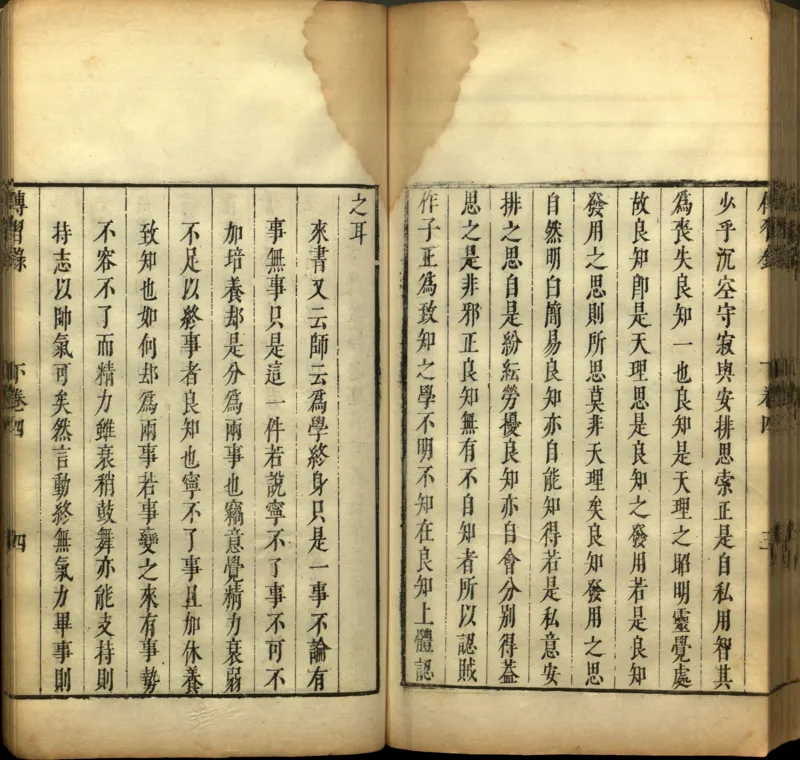 傳習錄 下卷四 三
少乎沉空守寂與安排思索正是自私用智其
為喪失良知一也良知是天理之昭明靈覺處
故良知卽是天理思是良知之發用若是良知
發用之思則所思莫非天理矣良知發用之思
自然明白簡易良知亦自能知得若是私意安
排之思自是紛紜勞擾良知亦自會分別得葢
思之是非邪正良知無有不自知者所以認賊
作子正為致知之學不明不知在良知上體認
之耳
來書又云師云為學終身只是一事不論有
事無事只是這一件若說寧不了事不可不
加培養却是分為兩事也竊意覺精力衰弱
不足以終事者良知也寧不了事且加休養
致知也如何却為兩事若事變之來有事勢
不容不了而精力雖衰稍鼓舞亦能支持則
持志以帥氣可矣然言動終無氣力畢事則
傳習錄 下卷四 四